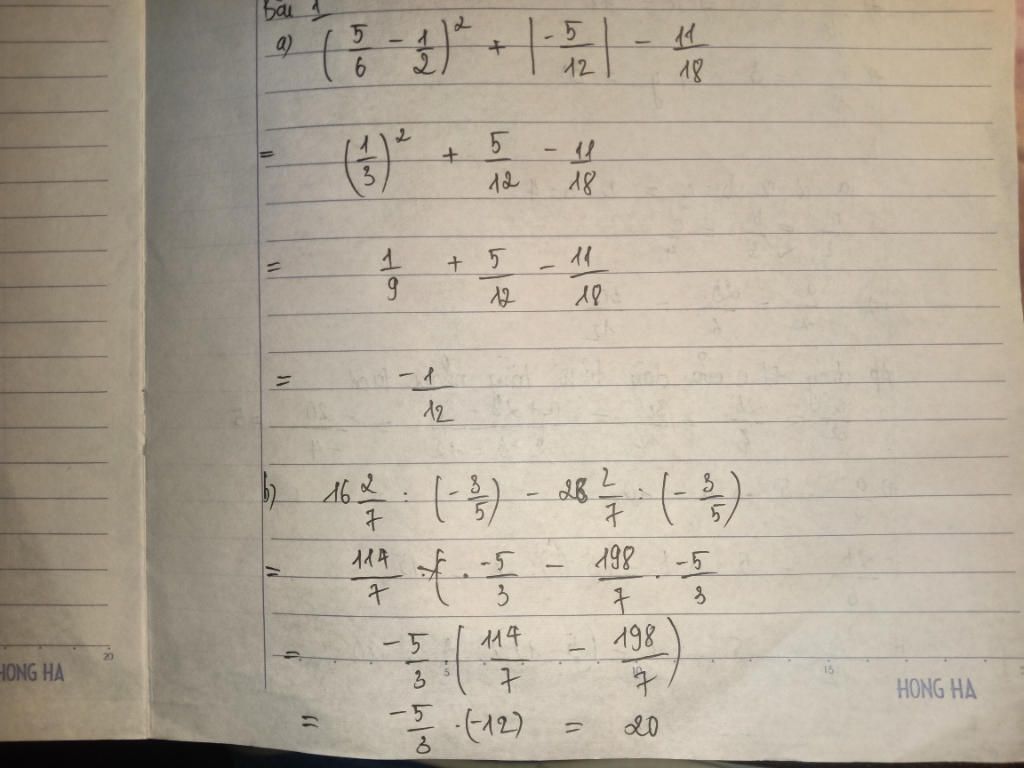 Bài 1
a) (5/6 - 1/2)² + |-5/12| - 11/18
= (1/3)² + 5/12 - 11/18
= 1/9 + 5/12 - 11/18
= -1/12
b) 16 2/7 : (-3/5) - 28 2/7 : (-3/5)
= 114/7 . -5/3 - 198/7 . -5/3
= -5/3 (114/7 - 198/7)
= -5/3 . (-12) = 20
HONG HA
20
5
10
15
HONG HA